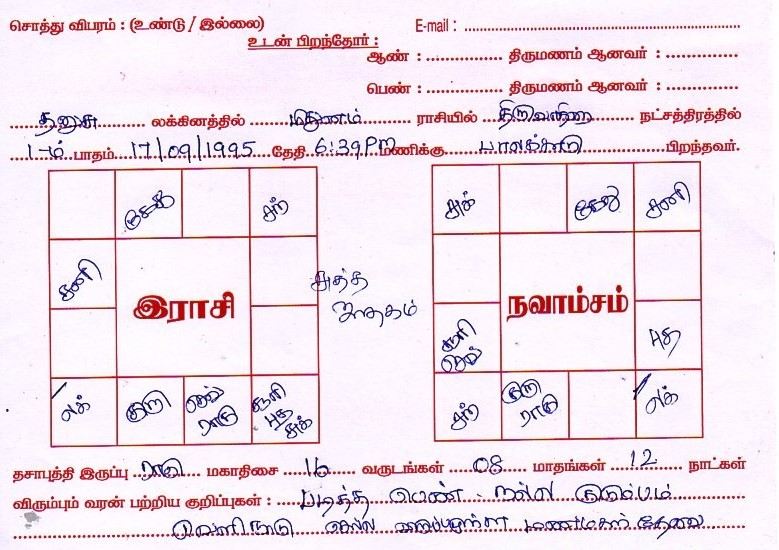 சொத்து விபரம் : (உண்டு / இல்லை) E-mail :
உடன் பிறந்தோர் :
ஆண் : திருமணம் ஆனவர் :
பெண் : திருமணம் ஆனவர் :
தனுசு லக்கினத்தில் மிதுனம் ராசியில் நட்சத்திரத்தில்
1-ம் பாதம் 17/09/1995 தேதி 6:39PM மணிக்கு பிறந்தவர்.
கேது சந் சுக் கேது சனி
சனி
இராசி
சுத்த
ஜாதகம்
நவாம்சம்
சூரி
செவ்
புத
லக் குரு செவ்
ராகு
சூரி
புத
சுக்
சந் குரு
ராகு
லக்
தசாபுத்தி இருப்பு ராகு மகாதிசை 16 வருடங்கள் 08 மாதங்கள் 12 நாட்கள்
விரும்பும் வரன் பற்றிய குறிப்புகள் : படித்த பெண் நல்ல குடும்பம்
வெளிநாடு செல்ல விருப்பமுள்ள மணமகள் தேவை